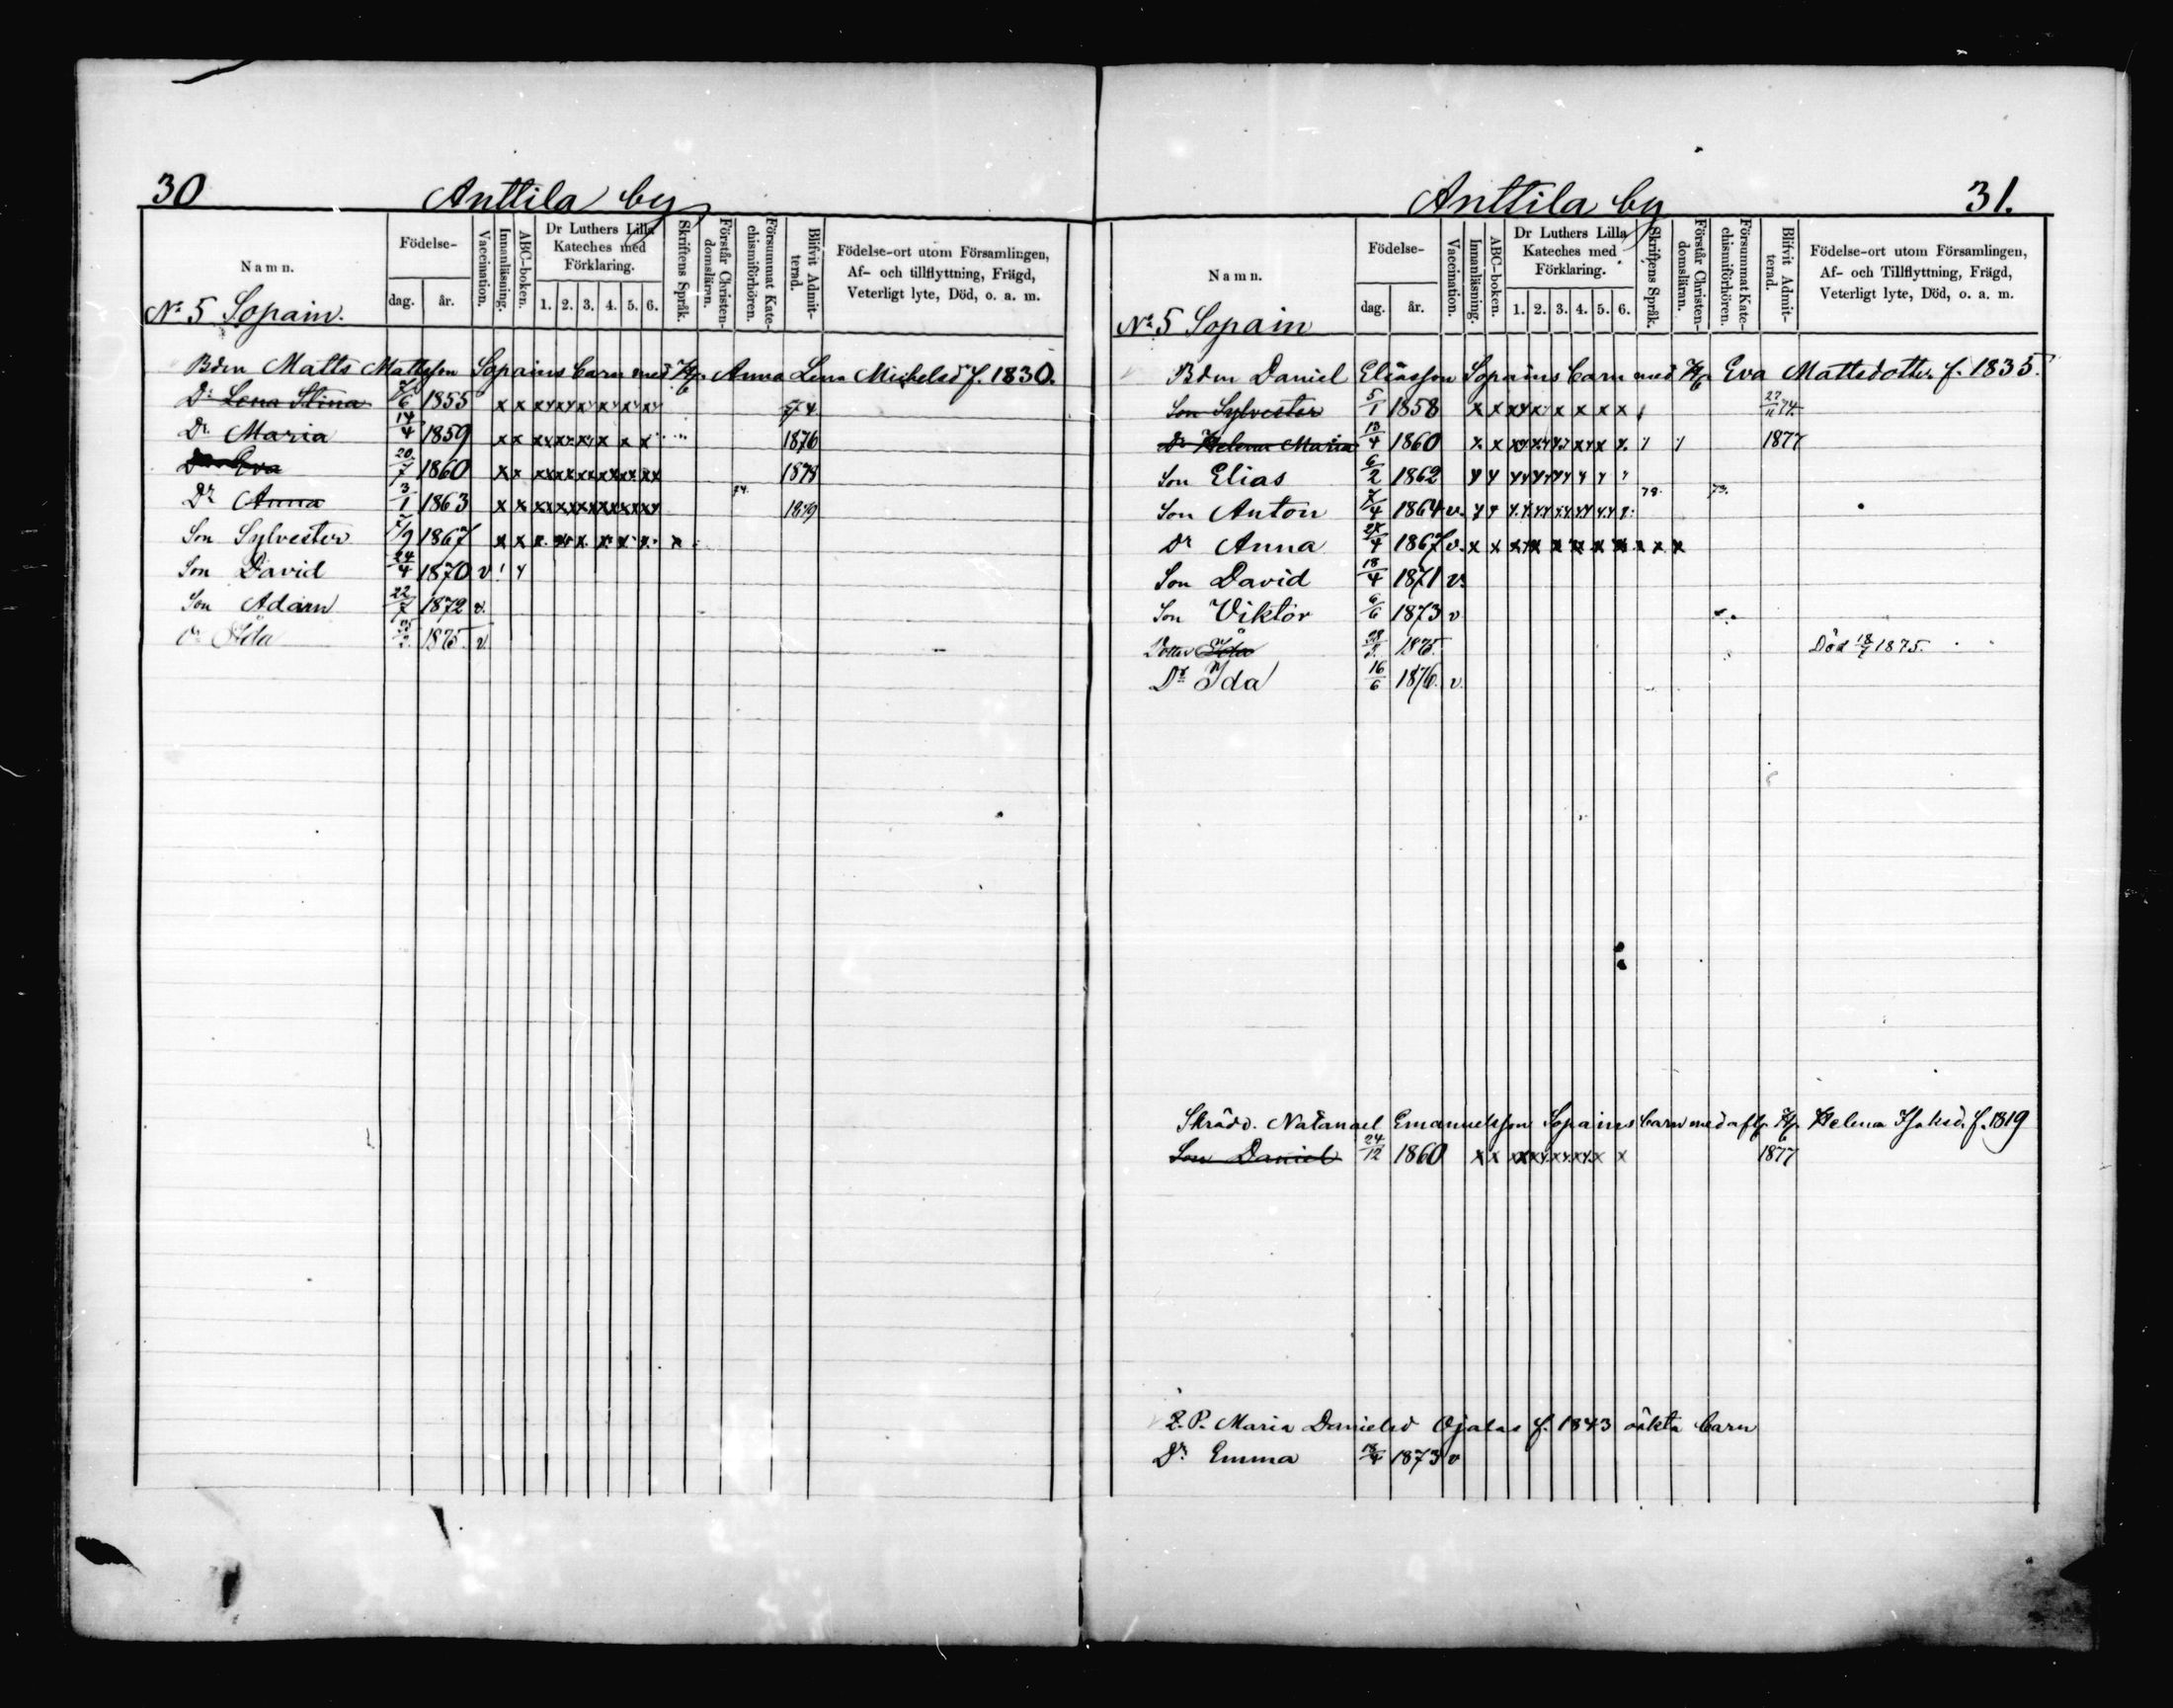 30 Anttila by
Namn. Födelse- dag. år. Vaccination. Innanläsning. ABC-boken. Dr Luthers Lilla Kateches med Förklaring. 1. 2. 3. 4. 5. 6. Skriftens Språk. Förstår Christen-domsläran. Försummat Kate-chismiförhören. Blifvit Admit-terad. Födelse-ort utom Församlingen, Af- och tillflyttning, Frägd, Veterligt lyte, Död, o. a. m.
No 5 Sopain.
Bdm Matts Mattsson Sopains barn med Hu Anna Lena Michelsd f. 1830.
Dr Lena Stina 7/6 1855 x x x x x x x x 74
Dr Maria 14/4 1859 x x x x x x x x 1876
Dr Eva 20/7 1860 x x x x x x x x 1878
Dr Anna 3/1 1863 x x x x x x x x 74. 1879
Son Sylvester 7/9 1867 x x x x x x x x x
Son David 24/4 1870 v
Son Adam 22/7 1872 v.
Dr Ida 1875. v
Anttila by 31.
Namn. Födelse- dag. år. Vaccination. Innanläsning. ABC-boken. Dr Luthers Lilla Kateches med Förklaring. 1. 2. 3. 4. 5. 6. Skriftens Språk. Förstår Christen-domsläran. Försummat Kate-chismiförhören. Blifvit Admit-terad. Födelse-ort utom Församlingen, Af- och Tillflyttning, Frägd, Veterligt lyte, Död, o. a. m.
No 5 Sopain
Bdm Daniel Eliasson Sopains barn med Hu Eva Mattsdotter f. 1835.
Son Sylvester 5/1 1858 x x x x x x x x 74
Dr Helena Maria 13/4 1860 x x x x x x x x 1877
Son Elias 6/2 1862
Son Anton 7/4 1864 v.
Dr Anna 1867 v. x x x x x x x x x x x
Son David 18/4 1871 v.
Son Viktor 6/6 1873 v
Dotter Ida 1875. Död 18/7 1875.
Dr Ida 16/6 1876. v.
Skrädd. Natanael Emanuelsson Sopains barn med afl. Hu Helena Isaksd. f. 1819
Son Daniel 24/12 1860 x x x x x x x x 1877
Q.P. Maria Danielsd Ojalas f. 1843 oäkta barn
Dr Emma 1873 v